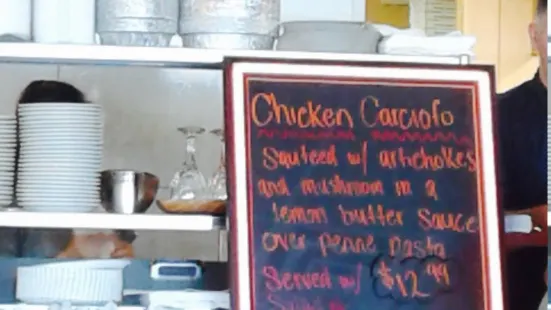 Chicken Carciofo
Sauteed w/ artichokes
and mushroom in a
lemon butter sauce
over penne pasta
Served w/ $12.99